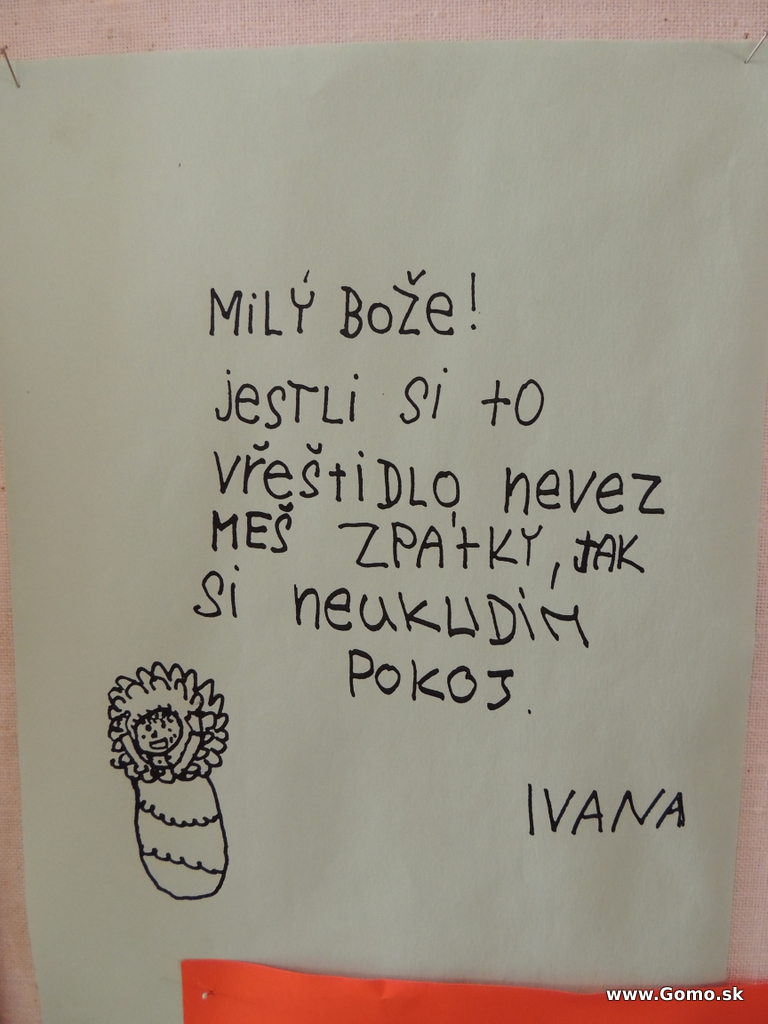 MiLÝ BOŽe!
jeSTLi Si tO
VřeštiDLO nevez
MEŠ ZPÁtKY, JAK
Si neukLiDÍM
POKOJ.
IVANA
www.Gomo.sk